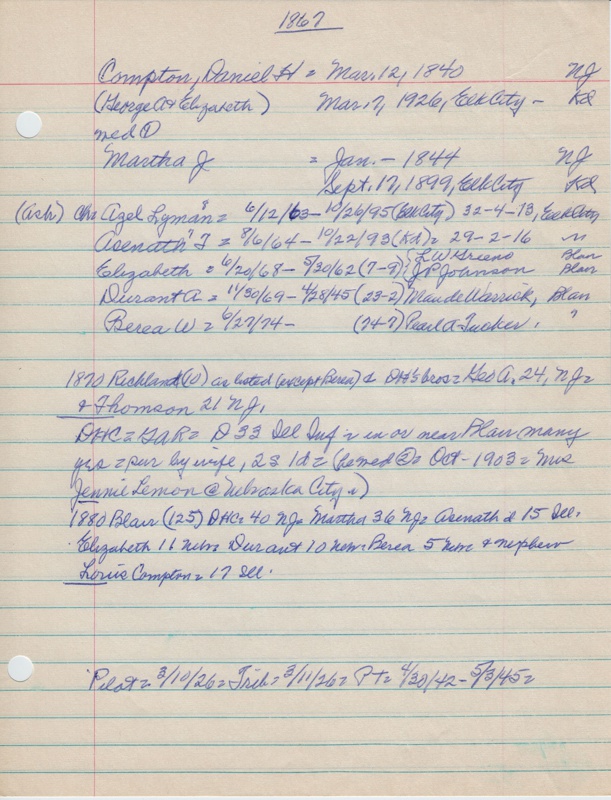 1867
Compton, Daniel H = Mar. 12, 1840 NJ
(George A & Elizabeth) Mar. 7, 1926, Elk City - Kd
med ①
Martha J = Jan. - 1844 NJ
Sept. 17, 1899, Elk City Kd
(Ash) Ch = Azel Lyman = 6/12/63 - 10/26/95 (Elk City) 32-4-13, Elk City
Asenath J = 8/6/64 - 10/22/93 (Kd) = 29-2-16 "
Elizabeth = 6/20/68 - 5/30/62 (7-9) L W Greeno Blair
J P Johnson Blair
Durant A = 11/30/69 - 4/28/45 (23-2) Maude Warrick, Blair
Berea W = 6/27/74 - (24-7) Pearl A Tucker, ?
1870 Richland (10) as listed (except Berea) & DH's bros = Geo A, 24, NJ =
& Thomson 21 NJ.
DHC = GAR = D 33 Ill Inf = in or near Blair many
yrs = sur by wife, 2s 1d = (he med ② = Oct - 1903 = Mrs
Jennie Lemon @ Nebraska City =)
1880 Blair (125) DHC = 40 NJ = Martha 36 NJ = Asenath d 15 Ill.
Elizabeth 11 Neb = Durant 10 Neb = Berea 5 Neb & nephew
Louis Compton = 17 Ill.
Pilot = 3/10/26 = Trib = 3/11/26 = PT = 4/30/42 - 5/3/45 =